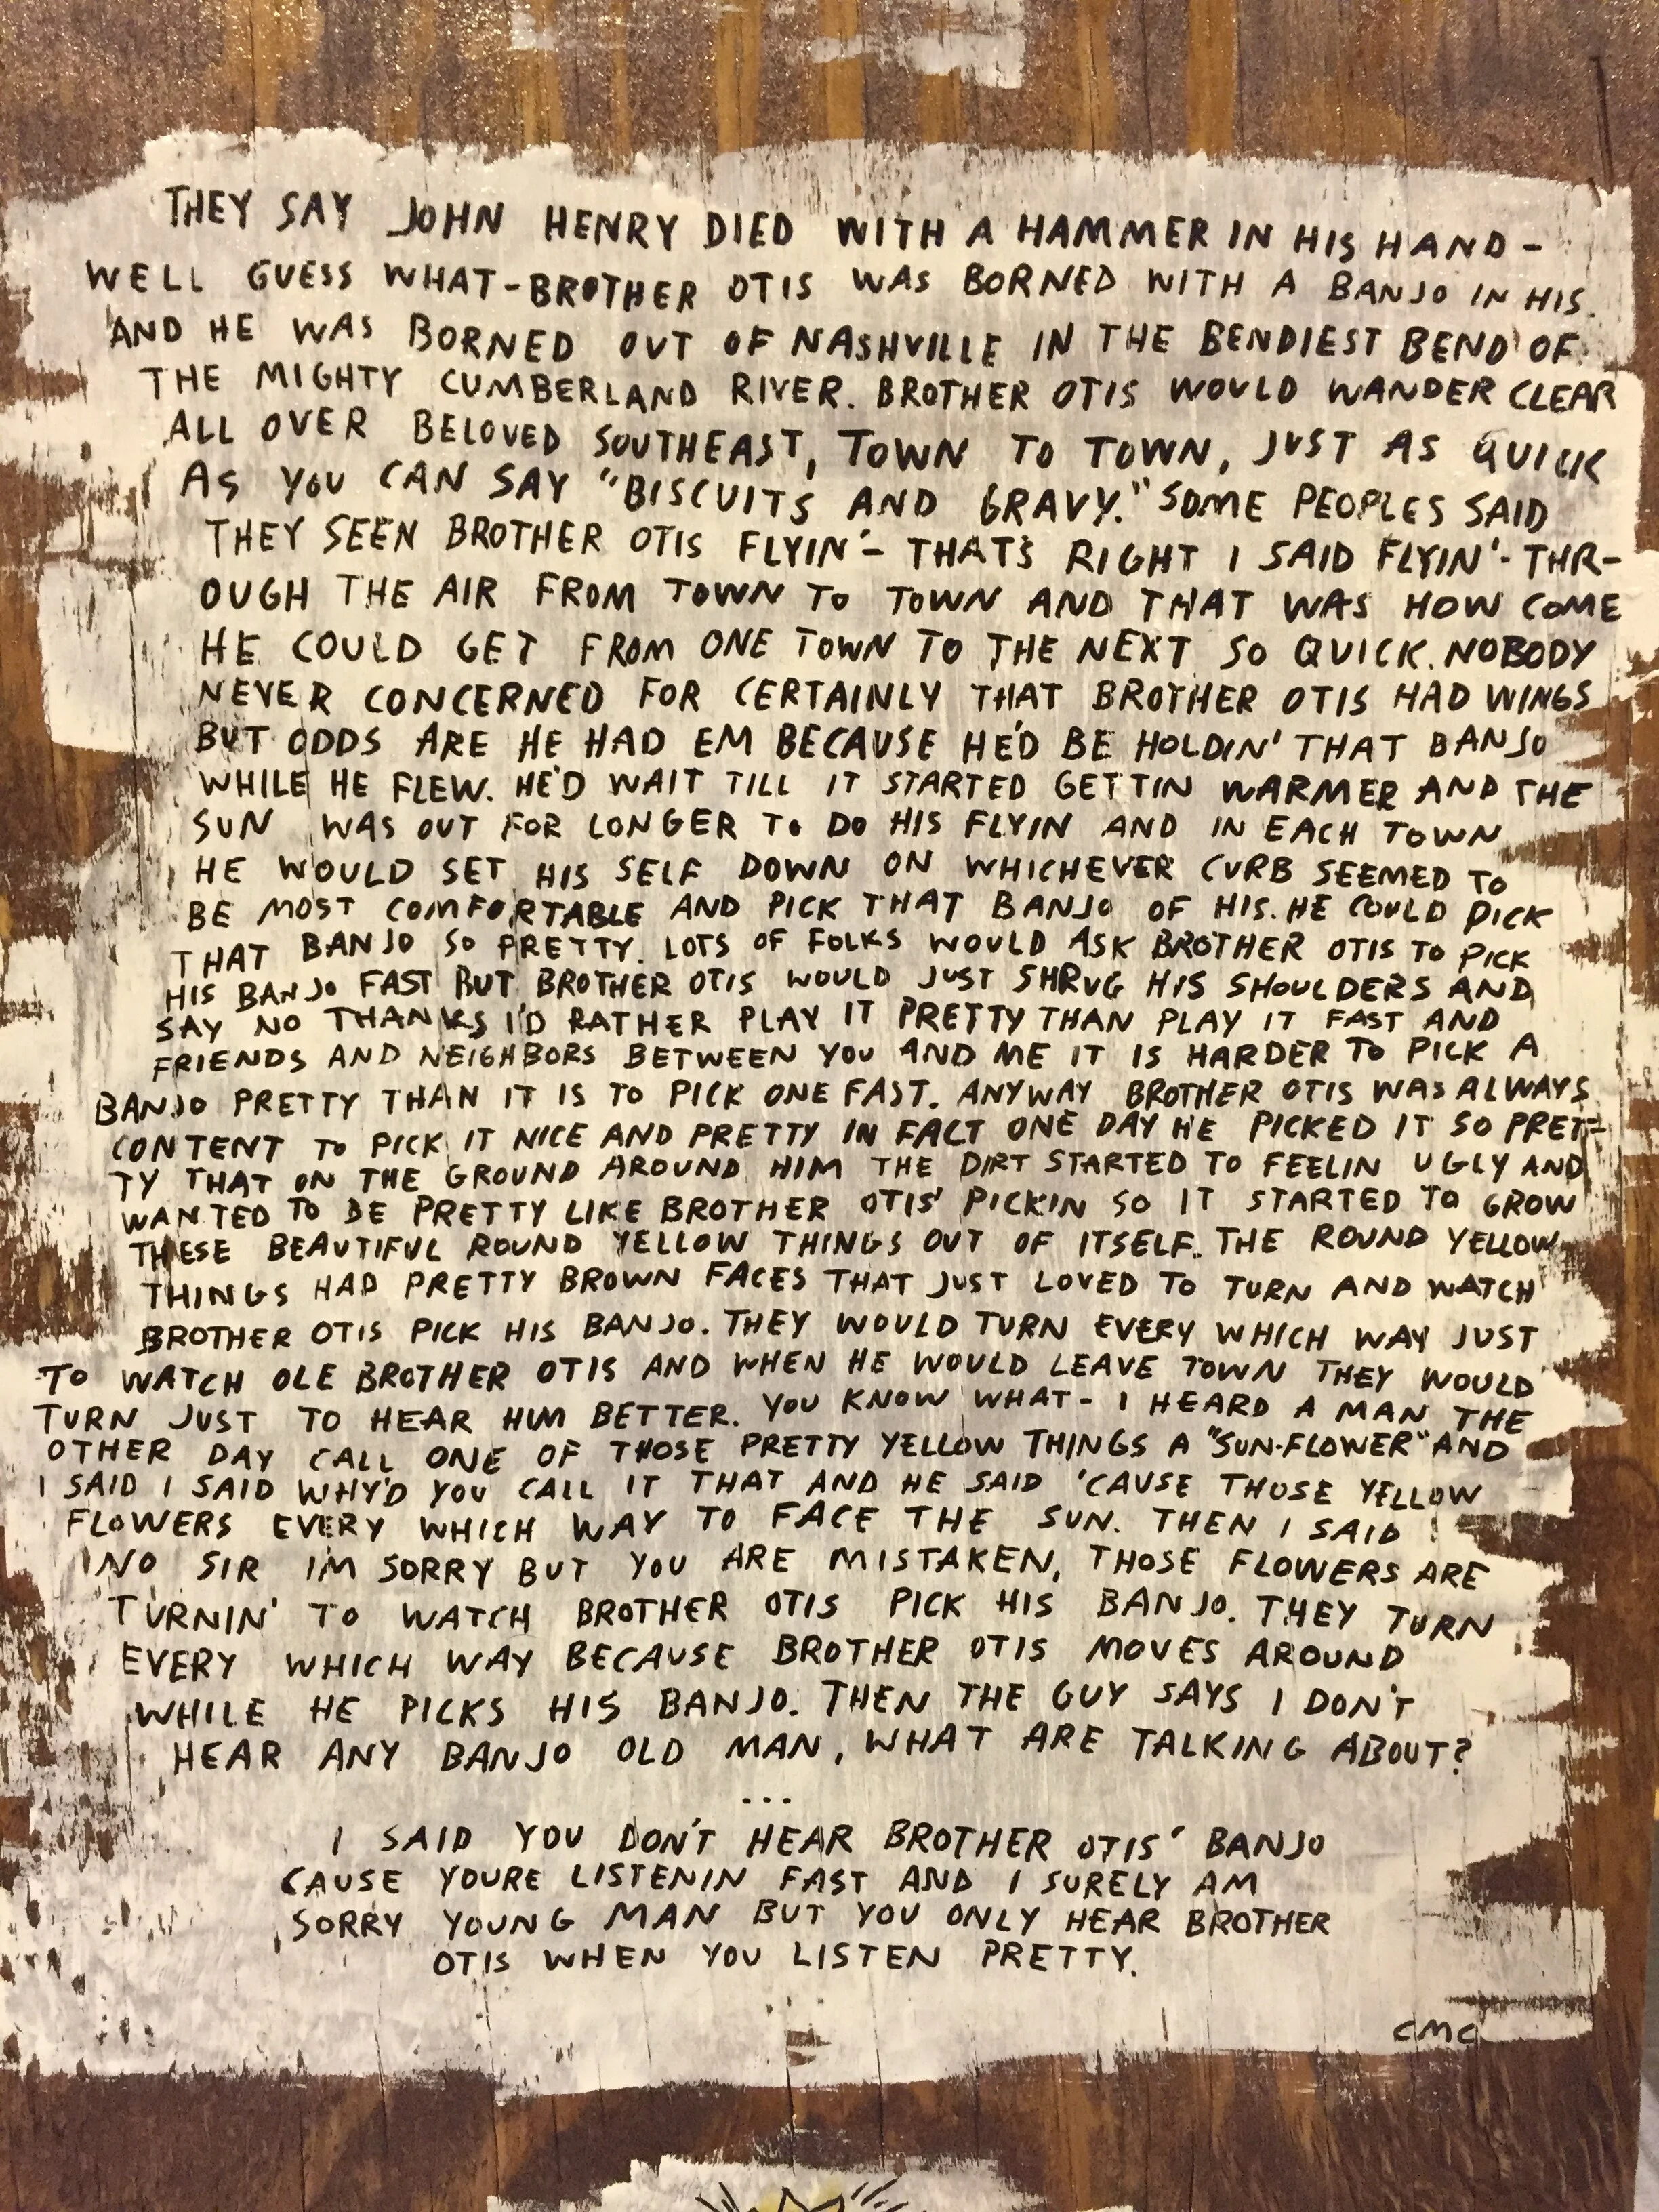 THEY SAY JOHN HENRY DIED WITH A HAMMER IN HIS HAND -
WELL GUESS WHAT - BROTHER OTIS WAS BORNED WITH A BANJO IN HIS.
AND HE WAS BORNED OUT OF NASHVILLE IN THE BENDIEST BEND OF
THE MIGHTY CUMBERLAND RIVER. BROTHER OTIS WOULD WANDER CLEAR
ALL OVER BELOVED SOUTHEAST, TOWN TO TOWN, JUST AS QUICK
AS YOU CAN SAY "BISCUITS AND GRAVY." SOME PEOPLES SAID
THEY SEEN BROTHER OTIS FLYIN' - THAT'S RIGHT I SAID FLYIN' - THR-
OUGH THE AIR FROM TOWN TO TOWN AND THAT WAS HOW COME
HE COULD GET FROM ONE TOWN TO THE NEXT SO QUICK. NOBODY
NEVER CONCERNED FOR CERTAINLY THAT BROTHER OTIS HAD WINGS
BUT ODDS ARE HE HAD EM BECAUSE HE'D BE HOLDIN' THAT BANJO
WHILE HE FLEW. HE'D WAIT TILL IT STARTED GETTIN WARMER AND THE
SUN WAS OUT FOR LONGER TO DO HIS FLYIN AND IN EACH TOWN
HE WOULD SET HIS SELF DOWN ON WHICHEVER CURB SEEMED TO
BE MOST COMFORTABLE AND PICK THAT BANJO OF HIS. HE COULD PICK
THAT BANJO SO PRETTY. LOTS OF FOLKS WOULD ASK BROTHER OTIS TO PICK
HIS BANJO FAST BUT BROTHER OTIS WOULD JUST SHRUG HIS SHOULDERS AND
SAY NO THANKS I'D RATHER PLAY IT PRETTY THAN PLAY IT FAST AND
FRIENDS AND NEIGHBORS BETWEEN YOU AND ME IT IS HARDER TO PICK A
BANJO PRETTY THAN IT IS TO PICK ONE FAST. ANYWAY BROTHER OTIS WAS ALWAYS
CONTENT TO PICK IT NICE AND PRETTY IN FACT ONE DAY HE PICKED IT SO PRET-
TY THAT ON THE GROUND AROUND HIM THE DIRT STARTED TO FEELIN UGLY AND
WANTED TO BE PRETTY LIKE BROTHER OTIS' PICKIN SO IT STARTED TO GROW
THESE BEAUTIFUL ROUND YELLOW THINGS OUT OF ITSELF. THE ROUND YELLOW
THINGS HAD PRETTY BROWN FACES THAT JUST LOVED TO TURN AND WATCH
BROTHER OTIS PICK HIS BANJO. THEY WOULD TURN EVERY WHICH WAY JUST
TO WATCH OLE BROTHER OTIS AND WHEN HE WOULD LEAVE TOWN THEY WOULD
TURN JUST TO HEAR HIM BETTER. YOU KNOW WHAT - I HEARD A MAN THE
OTHER DAY CALL ONE OF THOSE PRETTY YELLOW THINGS A "SUN-FLOWER" AND
I SAID I SAID WHY'D YOU CALL IT THAT AND HE SAID 'CAUSE THOSE YELLOW
FLOWERS EVERY WHICH WAY TO FACE THE SUN. THEN I SAID
NO SIR I'M SORRY BUT YOU ARE MISTAKEN, THOSE FLOWERS ARE
TURNIN' TO WATCH BROTHER OTIS PICK HIS BANJO. THEY TURN
EVERY WHICH WAY BECAUSE BROTHER OTIS MOVES AROUND
WHILE HE PICKS HIS BANJO. THEN THE GUY SAYS I DON'T
HEAR ANY BANJO OLD MAN, WHAT ARE TALKING ABOUT?
...
I SAID YOU DON'T HEAR BROTHER OTIS' BANJO
CAUSE YOURE LISTENIN FAST AND I SURELY AM
SORRY YOUNG MAN BUT YOU ONLY HEAR BROTHER
OTIS WHEN YOU LISTEN PRETTY.
CMC